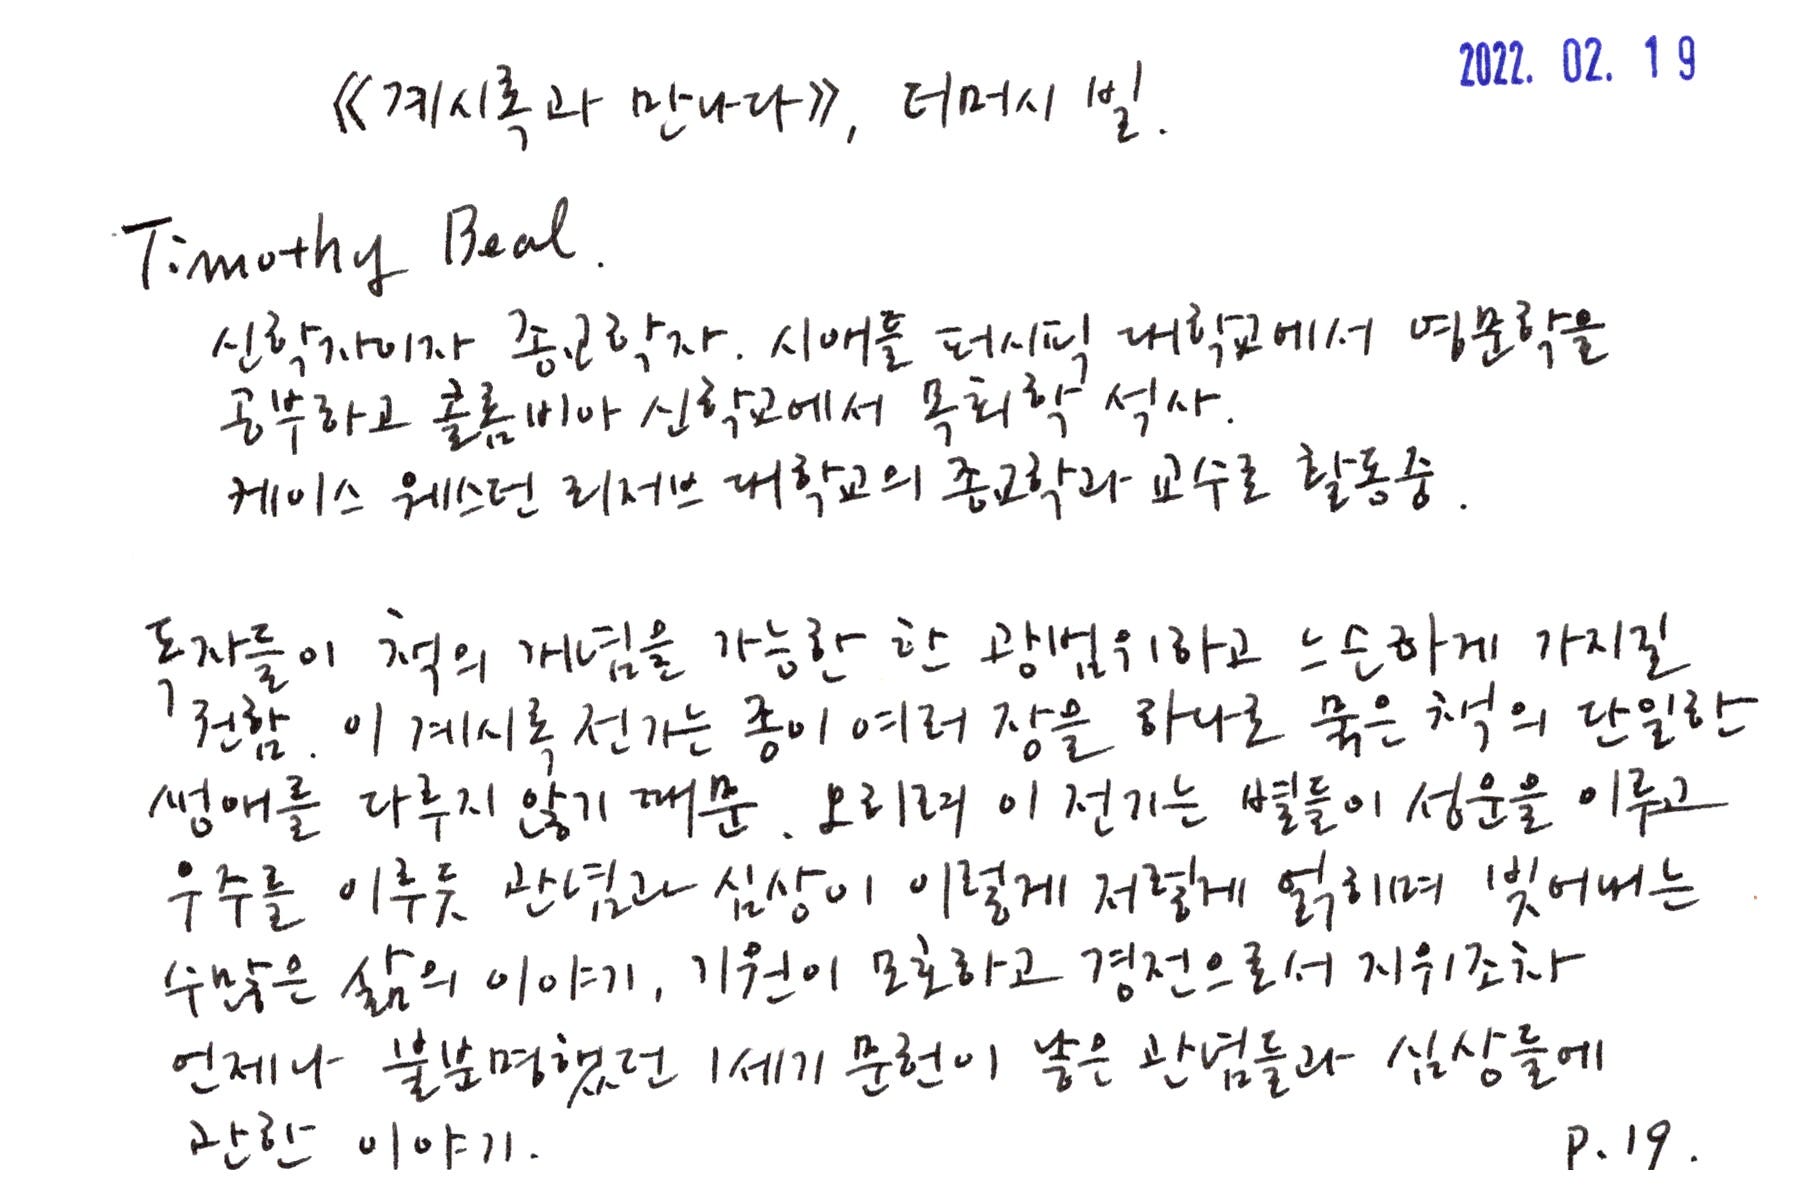 2022. 02. 19
《계시록과 만나다》, 티머시 빌.
Timothy Beal.
신학자이자 종교학자. 시애틀 퍼시픽 대학교에서 영문학을
공부하고 콜롬비아 신학교에서 목회학 석사.
케이스 웨스턴 리저브 대학교의 종교학과 교수로 활동중.
독자들이 책의 개념을 가능한 한 광범위하고 느슨하게 가지길
권함. 이 계시록 전기는 종이 여러 장을 하나로 묶은 책의 단일한
생애를 다루지 않기 때문. 오히려 이 전기는 별들이 성운을 이루고
우주를 이루듯 관념과 심상이 이렇게 저렇게 얽히며 빚어내는
수많은 삶의 이야기, 기원이 모호하고 경전으로서 지위조차
언제나 불분명했던 1세기 문헌이 낳은 관념들과 심상들에
관한 이야기.
P.19.